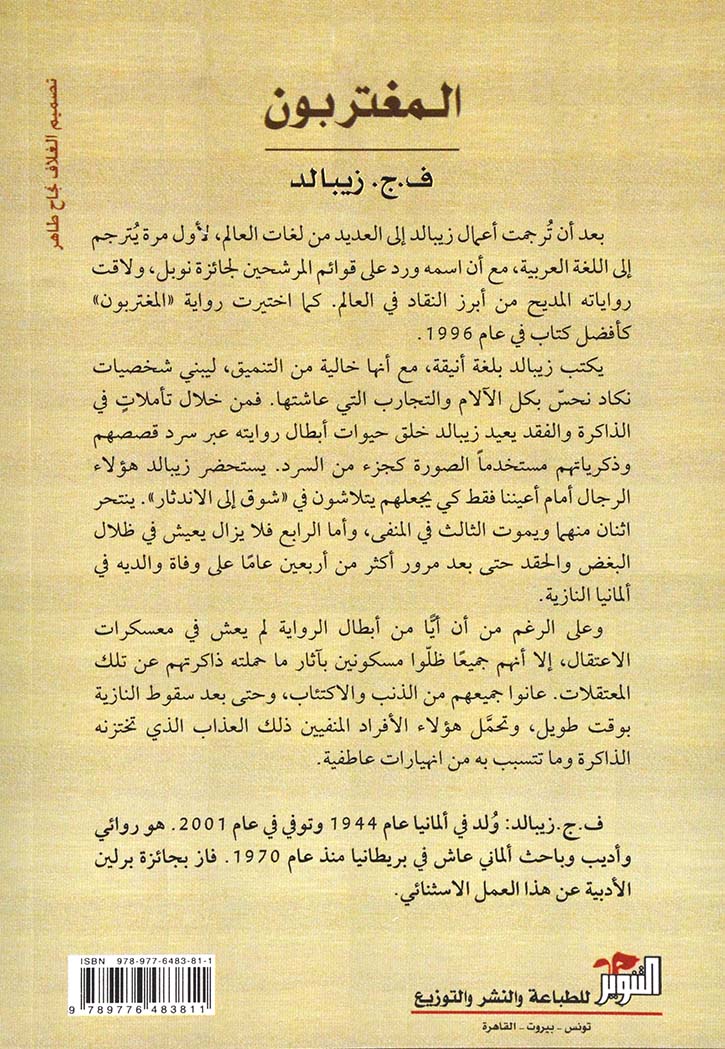 المغتربون
ف.ج. زيبالد
بعد أن تُرجمت أعمال زيبالد إلى العديد من لغات العالم، لأول مرة يُترجم
إلى اللغة العربية، مع أن اسمه ورد على قوائم المرشحين لجائزة نوبل، ولاقت
رواياته المديح من أبرز النقاد في العالم. كما اختيرت رواية «المغتربون»
كأفضل كتاب في عام 1996.
يكتب زيبالد بلغة أنيقة، مع أنها خالية من التنميق، ليبني شخصيات
نكاد نحسّ بكل الآلام والتجارب التي عاشتها. فمن خلال تأملاتٍ في
الذاكرة والفقد يعيد زيبالد خلق حيوات أبطال روايته عبر سرد قصصهم
وذكرياتهم مستخدماً الصورة كجزء من السرد. يستحضر زيبالد هؤلاء
الرجال أمام أعيننا فقط كي يجعلهم يتلاشون في «شوق إلى الاندثار». ينتحر
اثنان منهما ويموت الثالث في المنفى، وأما الرابع فلا يزال يعيش في ظلال
البغض والحقد حتى بعد مرور أكثر من أربعين عامًا على وفاة والديه في
ألمانيا النازية.
وعلى الرغم من أن أيًّا من أبطال الرواية لم يعش في معسكرات
الاعتقال، إلا أنهم جميعًا ظلّوا مسكونين بآثار ما حملته ذاكرتهم عن تلك
المعتقلات. عانوا جميعهم من الذنب والاكتئاب، وحتى بعد سقوط النازية
بوقت طويل، وتحمَّل هؤلاء الأفراد المنفيين ذلك العذاب الذي تختزنه
الذاكرة وما تتسبب به من انهيارات عاطفية.
ف.ج.زيبالد: وُلد في ألمانيا عام 1944 وتوفي في عام 2001. هو روائي
وأديب وباحث ألماني عاش في بريطانيا منذ عام 1970. فاز بجائزة برلين
الأدبية عن هذا العمل الاستثنائي.
تصميم الغلاف نجاح طاهر
ISBN 978-977-6483-81-1
9 789776 483811
التنوير للطباعة والنشر والتوزيع
تونس - بيروت - القاهرة